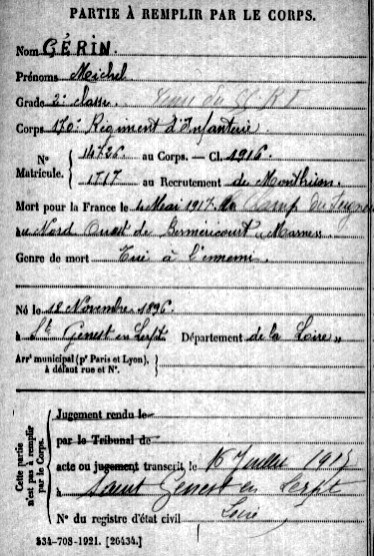 PARTIE À REMPLIR PAR LE CORPS.
Nom GÉRIN.
Prénoms Michel
Grade 2e classe. Venu du 55 R I
Corps 170e Régiment d'Infanterie
N° Matricule. { 14726 au Corps. — Cl. 1916
1717 au Recrutement de Montbrison
Mort pour la France le 4 Mai 1917 Camp du
au Nord Ouest de Berméricourt (Marne)
Genre de mort Tué à l'ennemi.
Né le 18 Novembre 1896
à St Genest en Lerpt Département de la Loire
Arrt municipal (pr Paris et Lyon), à défaut rue et N°.
Cette partie n'est pas à remplir par le Corps.
Jugement rendu le
par le Tribunal de
acte ou jugement transcrit le 16 1917
à Saint Genest en Lerpt
N° du registre d'état civil Loire
534-708-1921. [26434.]